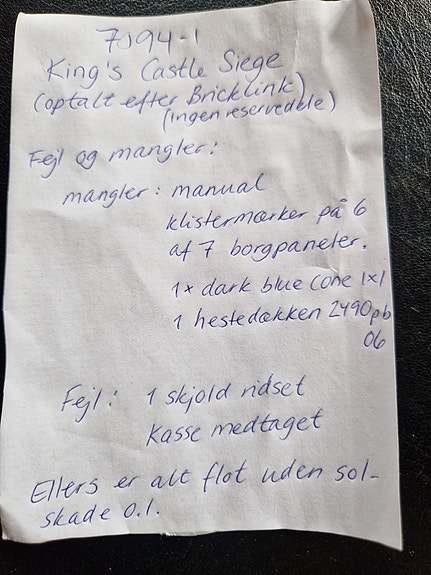 7094-1
King's Castle Siege
(optalt efter Bricklink)
(ingen reservedele)
Fejl og mangler:
mangler: manual
klistermærker på 6
af 7 borgpaneler.
1x dark blue cone 1x1
1 hestedækken 2490pb
06
Fejl: 1 skjold ridset
Kasse medtaget
Ellers er alt flot uden sol-
skade o.l.